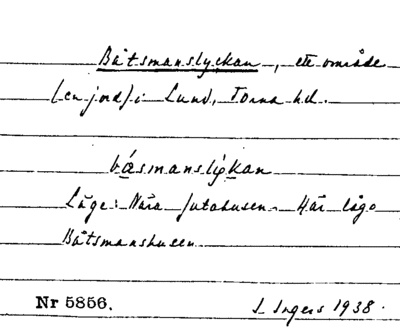 Båtsmanslyckan, ett område
(en jord) i Lund, Torna hd.
båsmanslykan
Läge: Nära Jutahusen. Här lågo
Båtsmanshusen
Nr 5856.
I Ingers 1938.